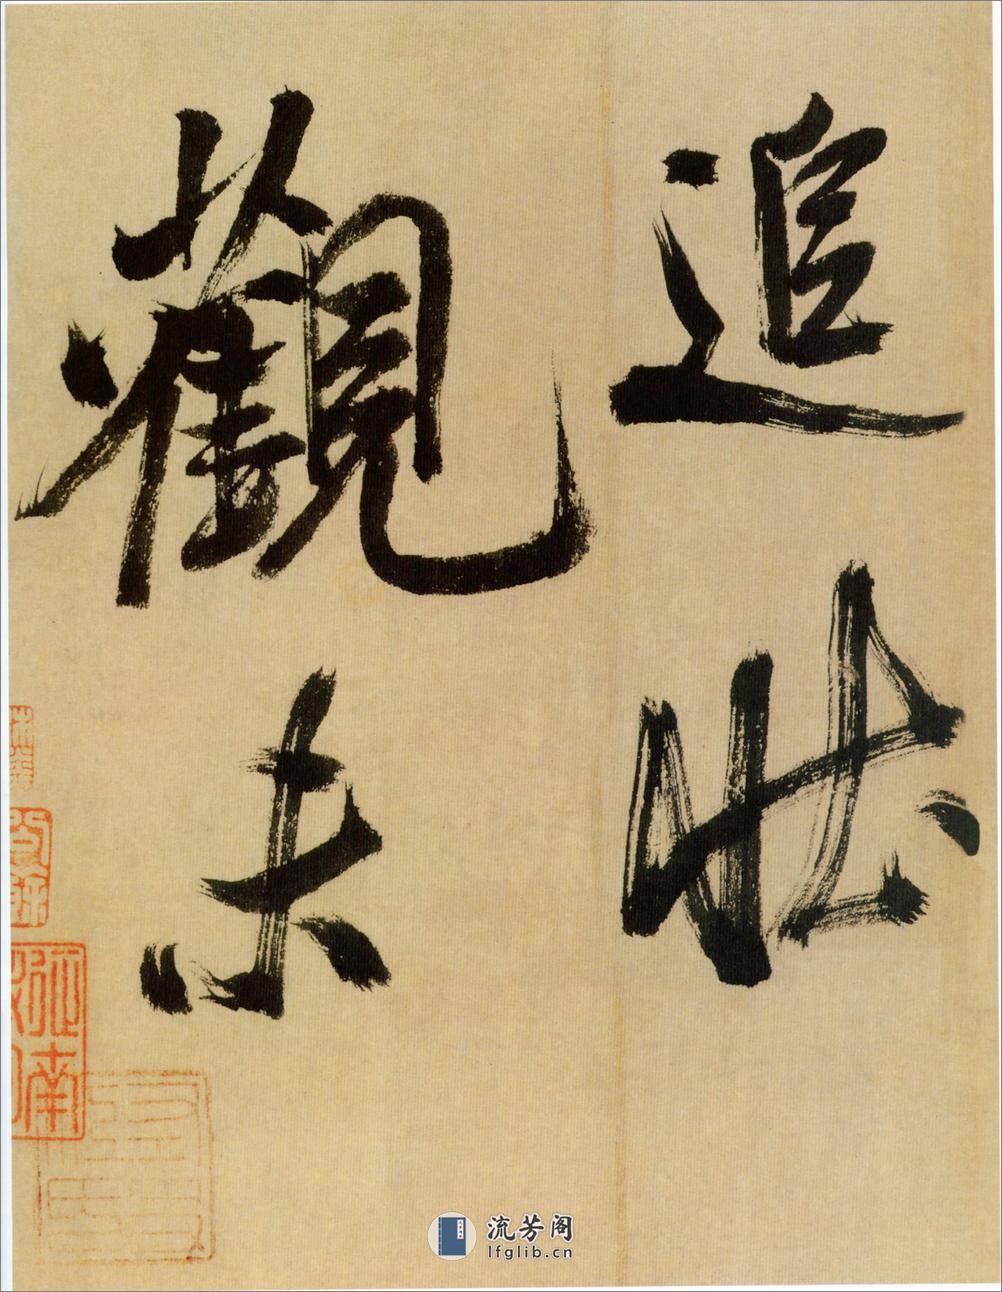 追壯
觀未
流芳阁
lfglib.cn